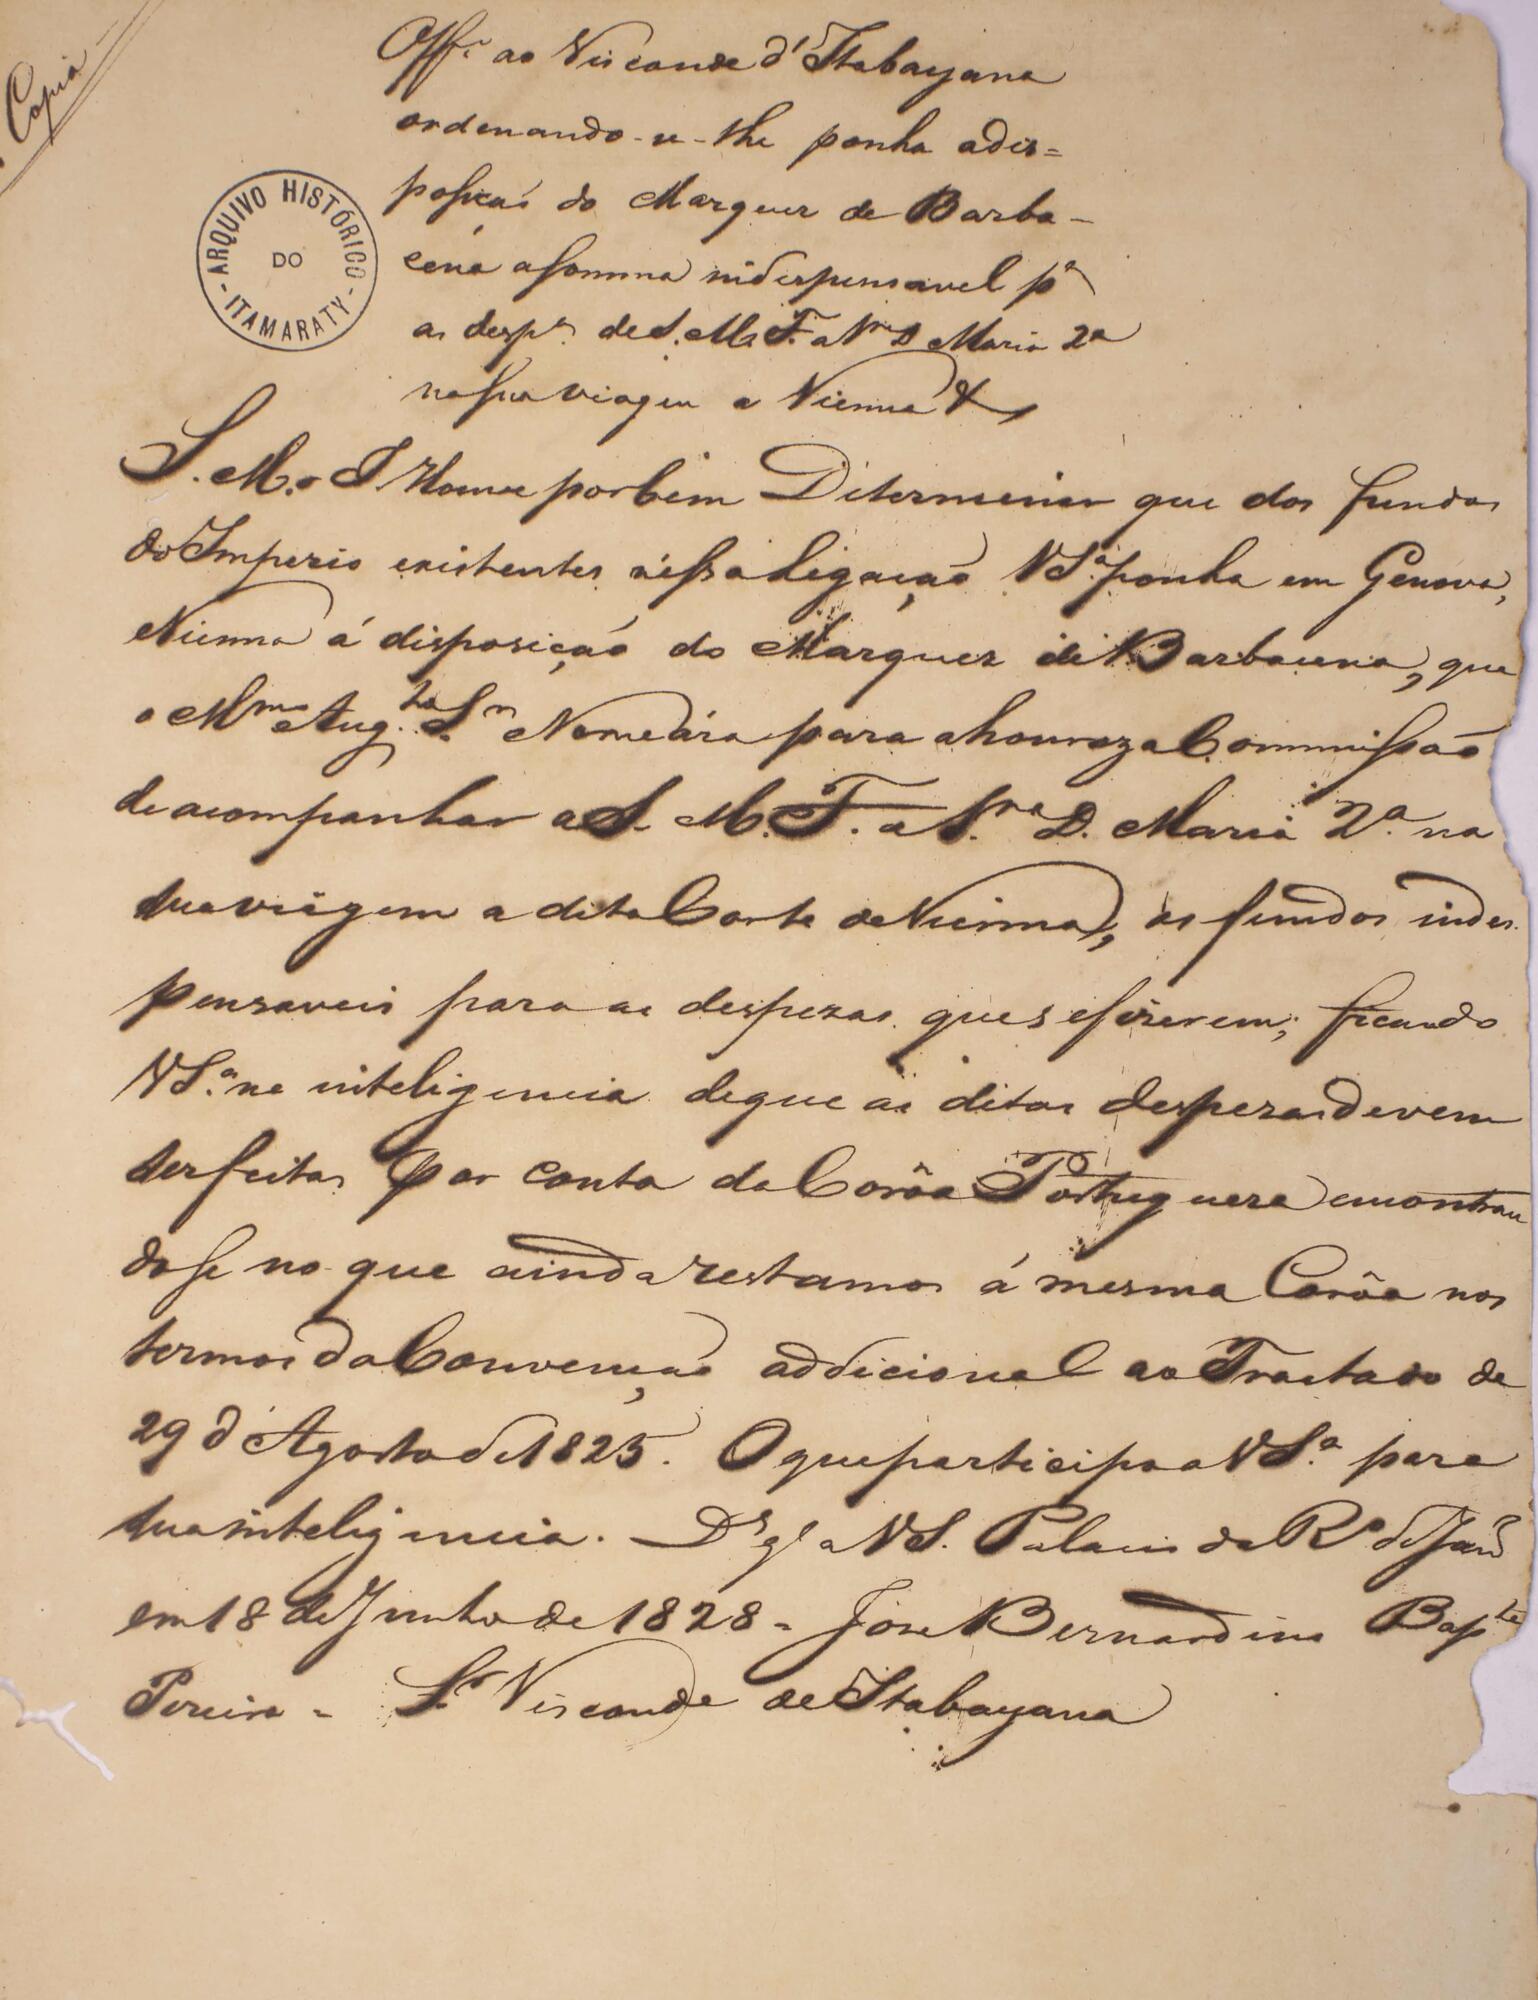 Copia
Off.º ao Visconde d'Itabayana
ordenando-se-lhe ponha a dis=
posição do Marquez de Barba-
cena a somma indespensavel p.ª
as desp.as de S. M. F. a Sr.a D. Maria 2ª
na sua viagem a Vienna &
ARQUIVO HISTÓRICO
DO
- ITAMARATY -
S. M. o I. Houve por bem Diterminar que dos fundos
do Imperio existentes nessa Ligação V S.ª ponha em Genova,
Vienna á disposição do Marquez de Barbacena, que
o M.mo Aug.to S.r Nomeára para a honroza Commissão
de acompanhar a S. M. F. a S.ra D. Maria 2.ª na
sua viágem a dita Corte de Vienna, os fundos indes-
pensaveis para as despezas que se fizerem; ficando
V S.ª na inteligencia de que as ditas despezas devem
ser feitas por conta da Corôa Portugueza encontran
do se no que ainda restamos á mesma Corôa nos
termos da Convenção addicional ao Tractado de
29 d'Agosto de 1825. O que participo a V S.ª para
sua inteligencia. D.s g.e a V S. Palacio do R.º de Jan.º
em 18 de Junho de 1828 = José Bernardino Bap.ta
Pereira = S.r Visconde de Itabayana